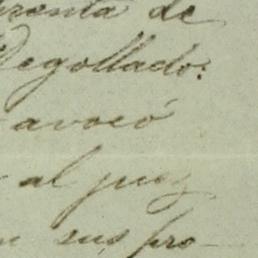 prenta de
Degollado:
avocó
al juez
n sus pro-